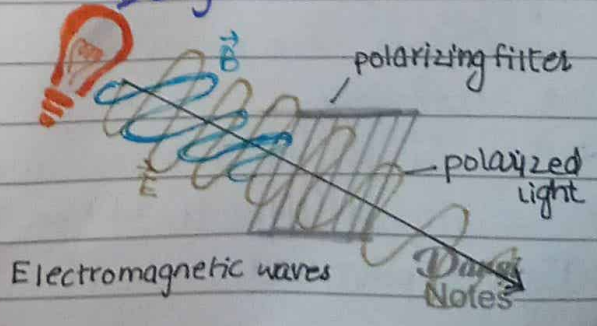 B
polarizing filter
polarized
light
E
Electromagnetic waves
Notes